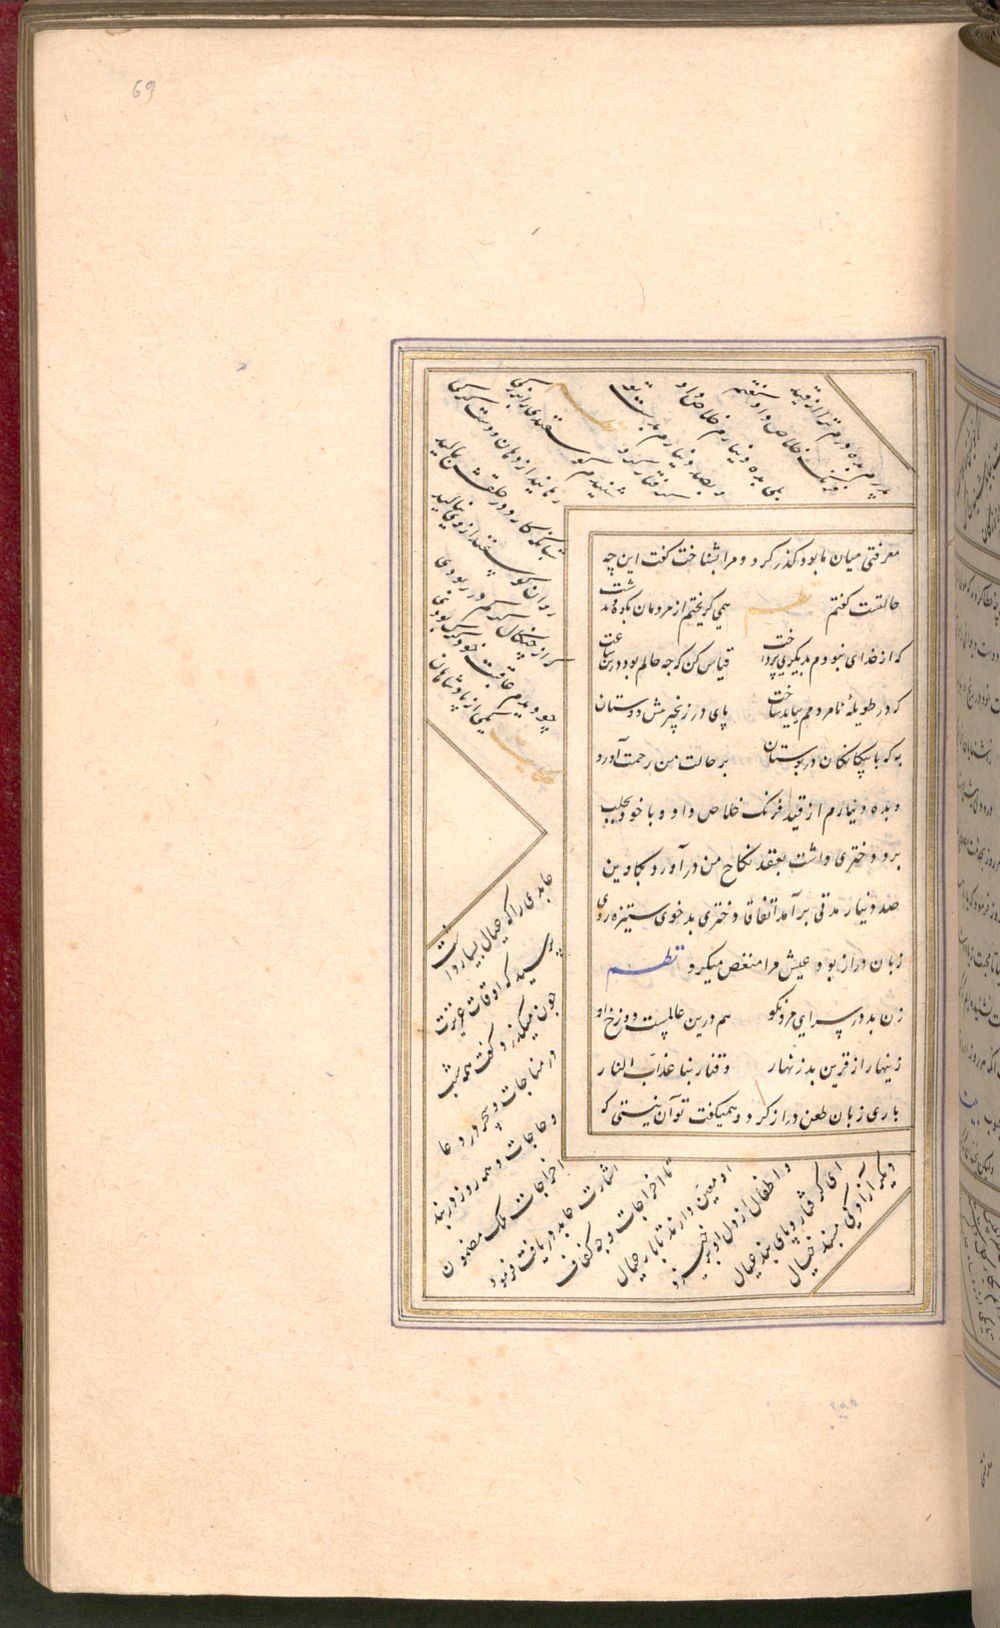 69
معرفتی میان ما بود گذر کرد و مرا بشناخت گفت این چه
حالتست گفتم نظم همی گریختم از مردمان بکوه و بدشت
که از خدای نبودم بدیگری پرداخت قیاس کن که چه حالم بود درین ساعت
که در طویلهٔ نامردمم بباید ساخت پای در زنجیر پیش دوستان
به که با بیگانگان در بوستان بر حالت من رحمت آورد
و بده دینارم از قید فرنگ خلاص داد و با خود بحلب
برد و دختری داشت بعقد نکاح من در آورد بکاوین
صد دینار مدتی برآمد اتفاقا دختری بدخوی ستیزه روی
زبان دراز بود و عیش مرا منغص میکرد نظم
زن بد در سرای مرد نکو هم درین عالمست دوزخ او
زینهار از قرین بد زنهار وقنا ربنا عذاب النار
باری زبان طعن دراز کرد و همیگفت تو آن نیستی که
پدرم بده درم ترا از قید
فرنگ خلاص داد گفتم
بلی بده دینارم خلاص داد
و بصد دینارم بدست تو
گرفتار کرد
شنیدم گوسفندی را بزرگی
رهانید از دهان و دست گرگی
شبانگه کارد در حلقش بمالید
روان گوسفند از وی بنالید
که از چنگال گرگم در ربودی
چو دیدم عاقبت خود گرگ بودی
حکایت یکی از پادشاهان
عابدی را که عیال بسیار داشت
پرسید که اوقات عزیزت
چون میگذرد گفت همه شب
در مناجات و سحر در دعا
و حاجات و همه روز در بند
اخراجات ملک مضمون
اشارت عابد دریافت فرمود
تا اخراجات وجه کفاف
او معین دارند تا بار عیال
و اطفال از دل او برخیزد
ای گرفتار و پای بند عیال
دیگر آزادگی مبند خیال